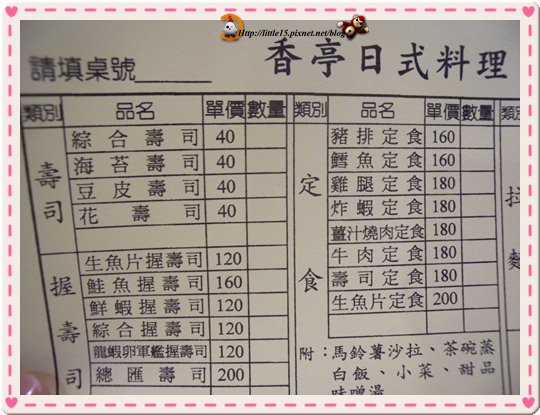 Http://little15.pixnet.net/blog
香亭日式料理
請填桌號
類別 品名 單價 數量
壽司
綜合壽司 40
海苔壽司 40
豆皮壽司 40
花壽司 40
握壽司
生魚片握壽司 120
鮭魚握壽司 160
鮮蝦握壽司 120
綜合握壽司 120
龍蝦卵軍艦握壽司 120
總匯壽司 200
類別 品名 單價 數量
定食
豬排定食 160
鱈魚定食 160
雞腿定食 180
炸蝦定食 180
薑汁燒肉定食 180
牛肉定食 180
壽司定食 180
生魚片定食 200
附：馬鈴薯沙拉、茶碗蒸
白飯、小菜、甜品
味噌湯
類
拉麵